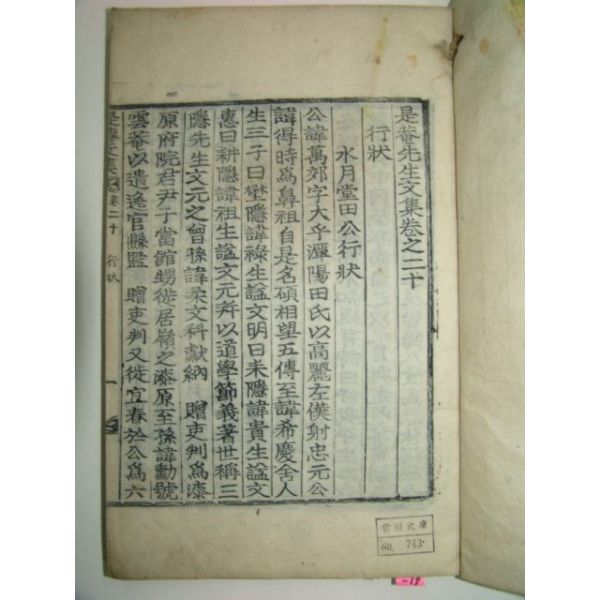 是菴先生文集卷之二十
行狀
水月堂田公行狀
公諱萬郊字大乎潭陽田氏以高麗左僕射忠元公
諱得時爲鼻祖自是名碩相望五傳至諱希慶舍人
生三子曰埜隱諱祿生諡文明曰耒隱諱貴生諡文
惠曰耕隱諱祖生諡文元并以道學節義著世稱三
隱先生文元之曾孫諱柔文科獻納 贈吏判爲漆
原府院君尹子當館甥徙居嶺之漆原至孫諱勳號
雲菴以遺逸官縣監 贈吏判又徙宜春於公爲六
是菴文集 卷二十 行狀
文庫
NO. 743
-18